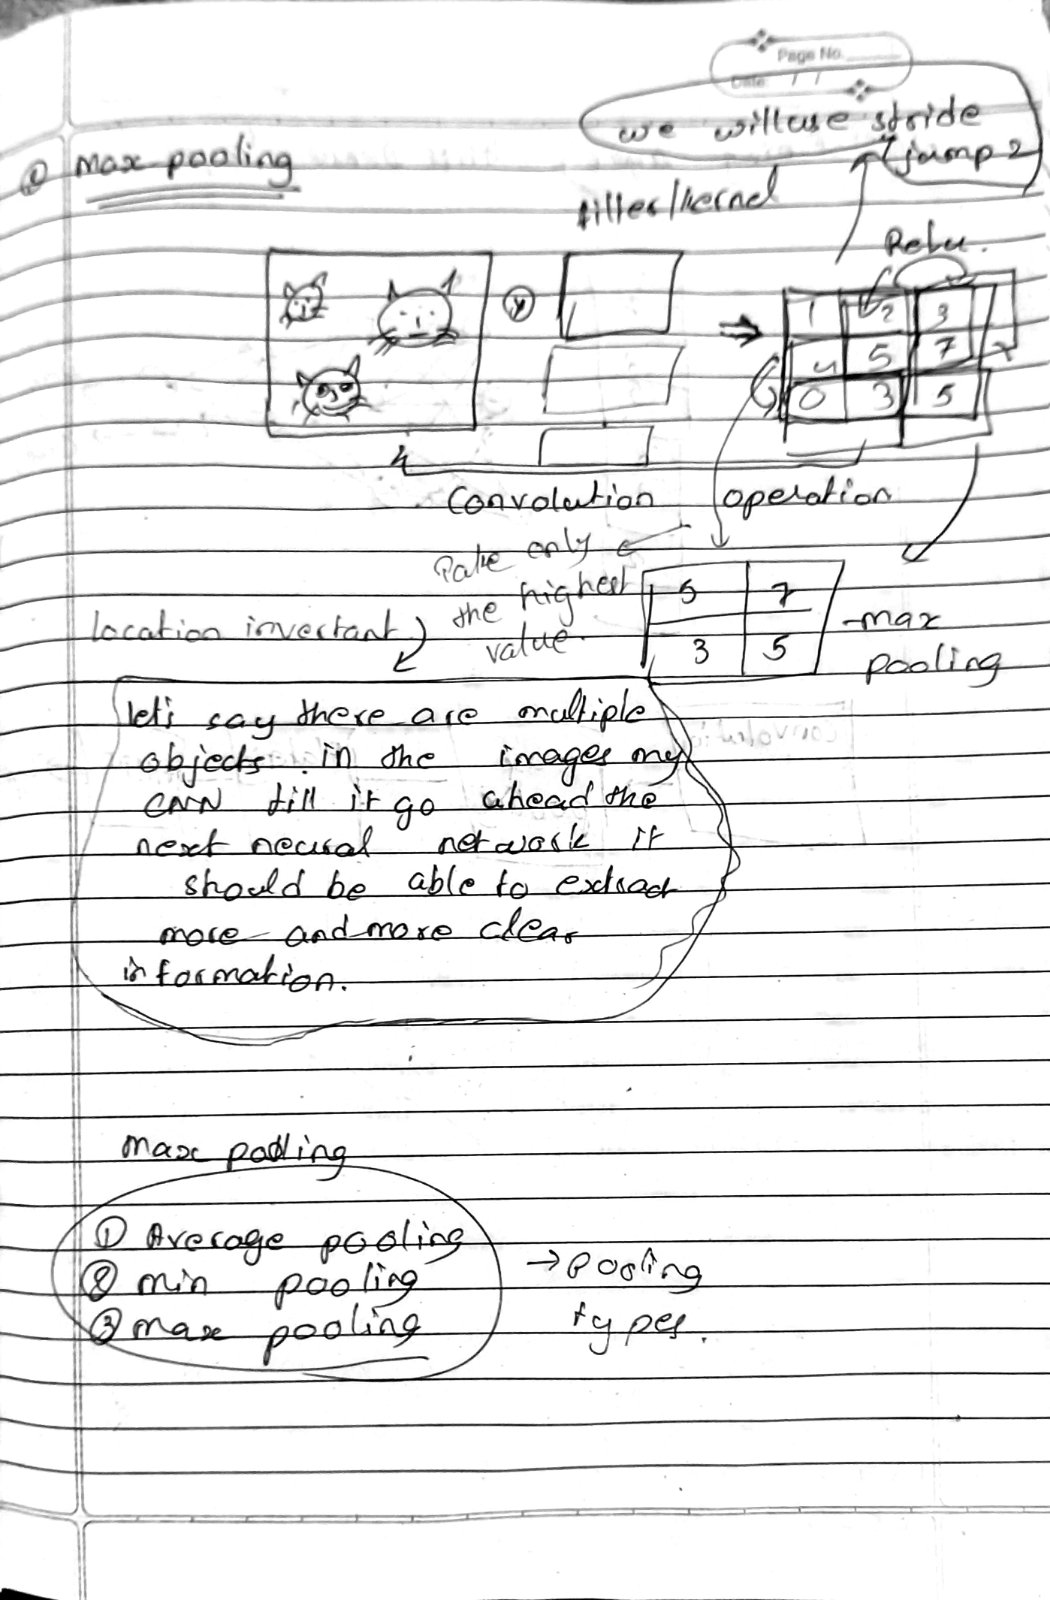 Page No.
Date / /
we will use stride
(jump 2
max pooling
filter/kernel
Relu.
1 2 3
4 5 7
0 3 5
Convolution operation
Take only
the highest
value.
5 7
3 5
-max
pooling
location invertant
let's say there are multiple
objects in the images my
CNN till it go ahead the
next neural network it
should be able to extract
more and more clear
information.
max pooling
① Average pooling
② min pooling
③ max pooling
→ Pooling
types.